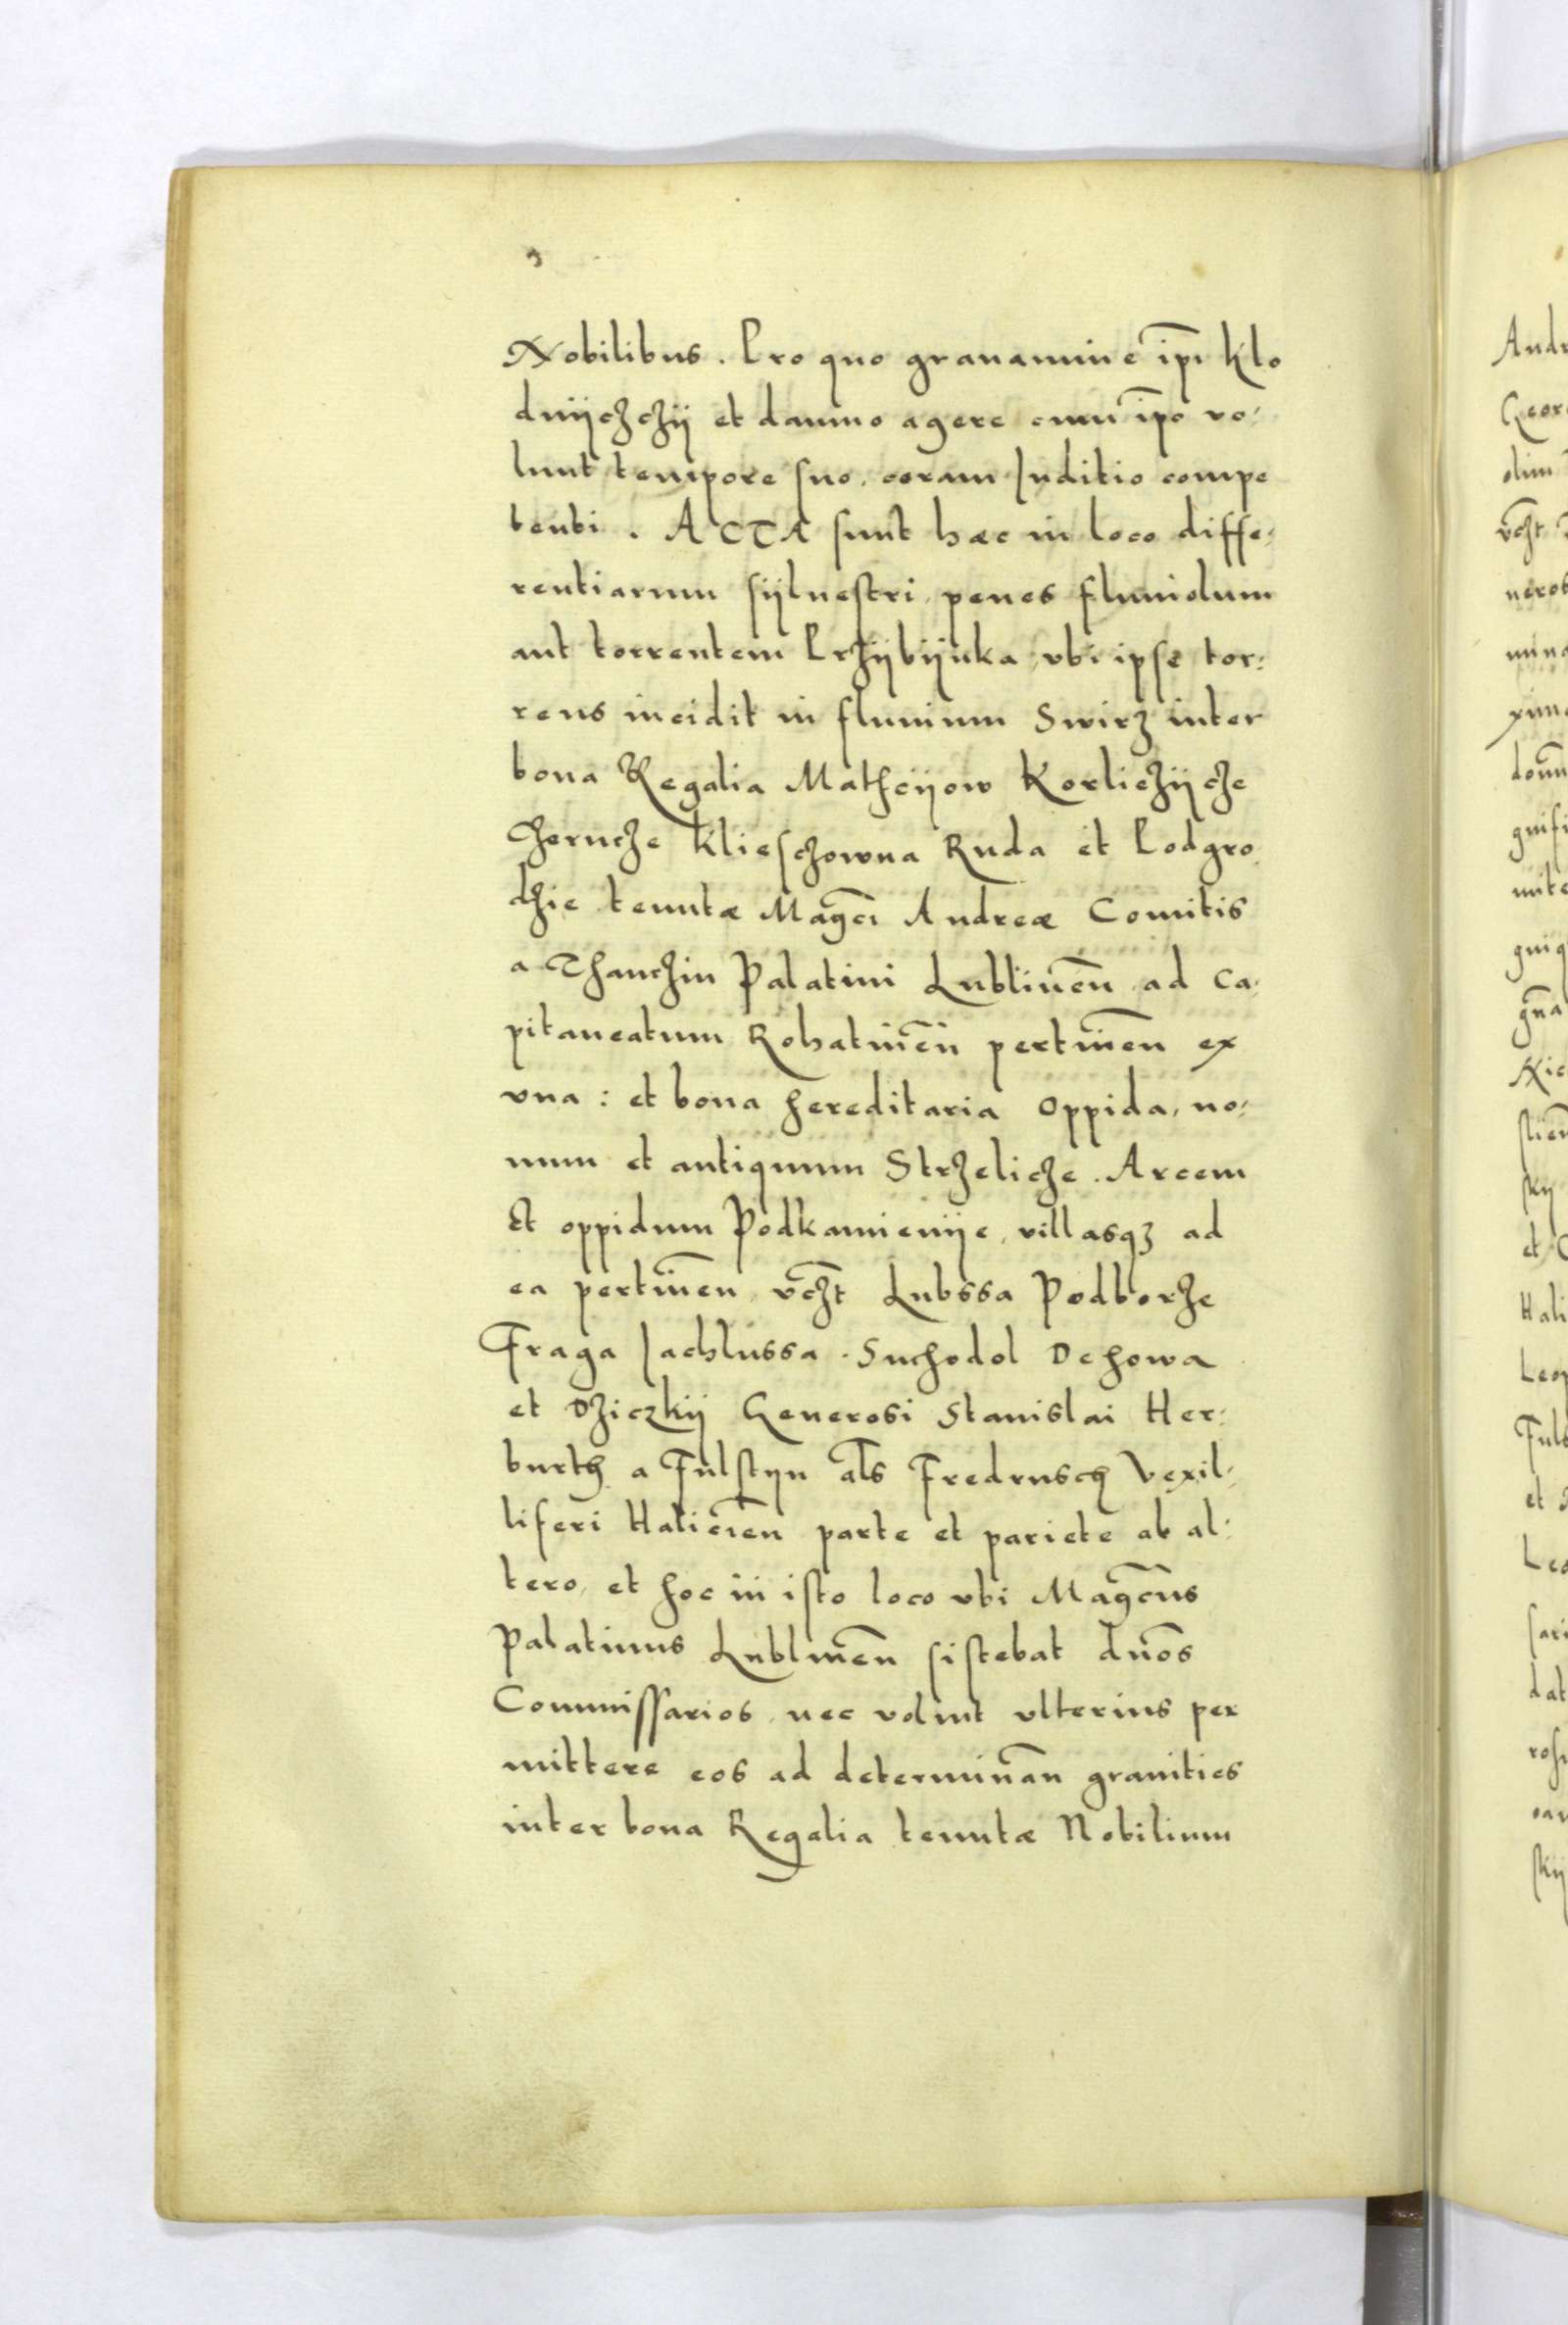 Nobilibus. Pro quo grauamine ip̄i Klo
dnijczchij et damno agere cum ip̄o vo:
lunt tempore suo, coram Iuditio compe
tenti. ACTA sunt hæc in loco diffe:
rentiarum sijluestri, penes fluuiolum
aut torrentem Przijbijnka, vbi ipse tor:
rens incidit in fluuium Swirz inter
bona Regalia Mathcijow Korliczijcze
Cherncze Klieschowna Ruda et Podgro
dzie tenutæ Mag̅ci Andreæ Comitis
a Thanczin Palatini Lublinen̄ ad Ca:
pitaneatum Rohatinen̄ pertinen̄ ex
vna: et bona hereditaria oppida, no:
uum et antiquum Strzelicze. Arcem
Et oppidum Podkamienije, villasqꝫ ad
ea pertinen̄ vc̄zt Lubssa Podborze
Fraga Iachlussa. Suchodol Dehowa
et Dziczkij Generosi Stanislai Her:
burth a Fulstijn al̄s Fredrusch Vexil:
liferi Halicien̄ parte et pariete ab al:
tero, et hoc in isto loco vbi Mag̅cus
Palatinus Lublinen̄ sistebat dn̄os
Commissarios, nec voluit vlterius per
mittere eos ad determinan̄ granities
inter bona Regalia tenutæ Nobilium